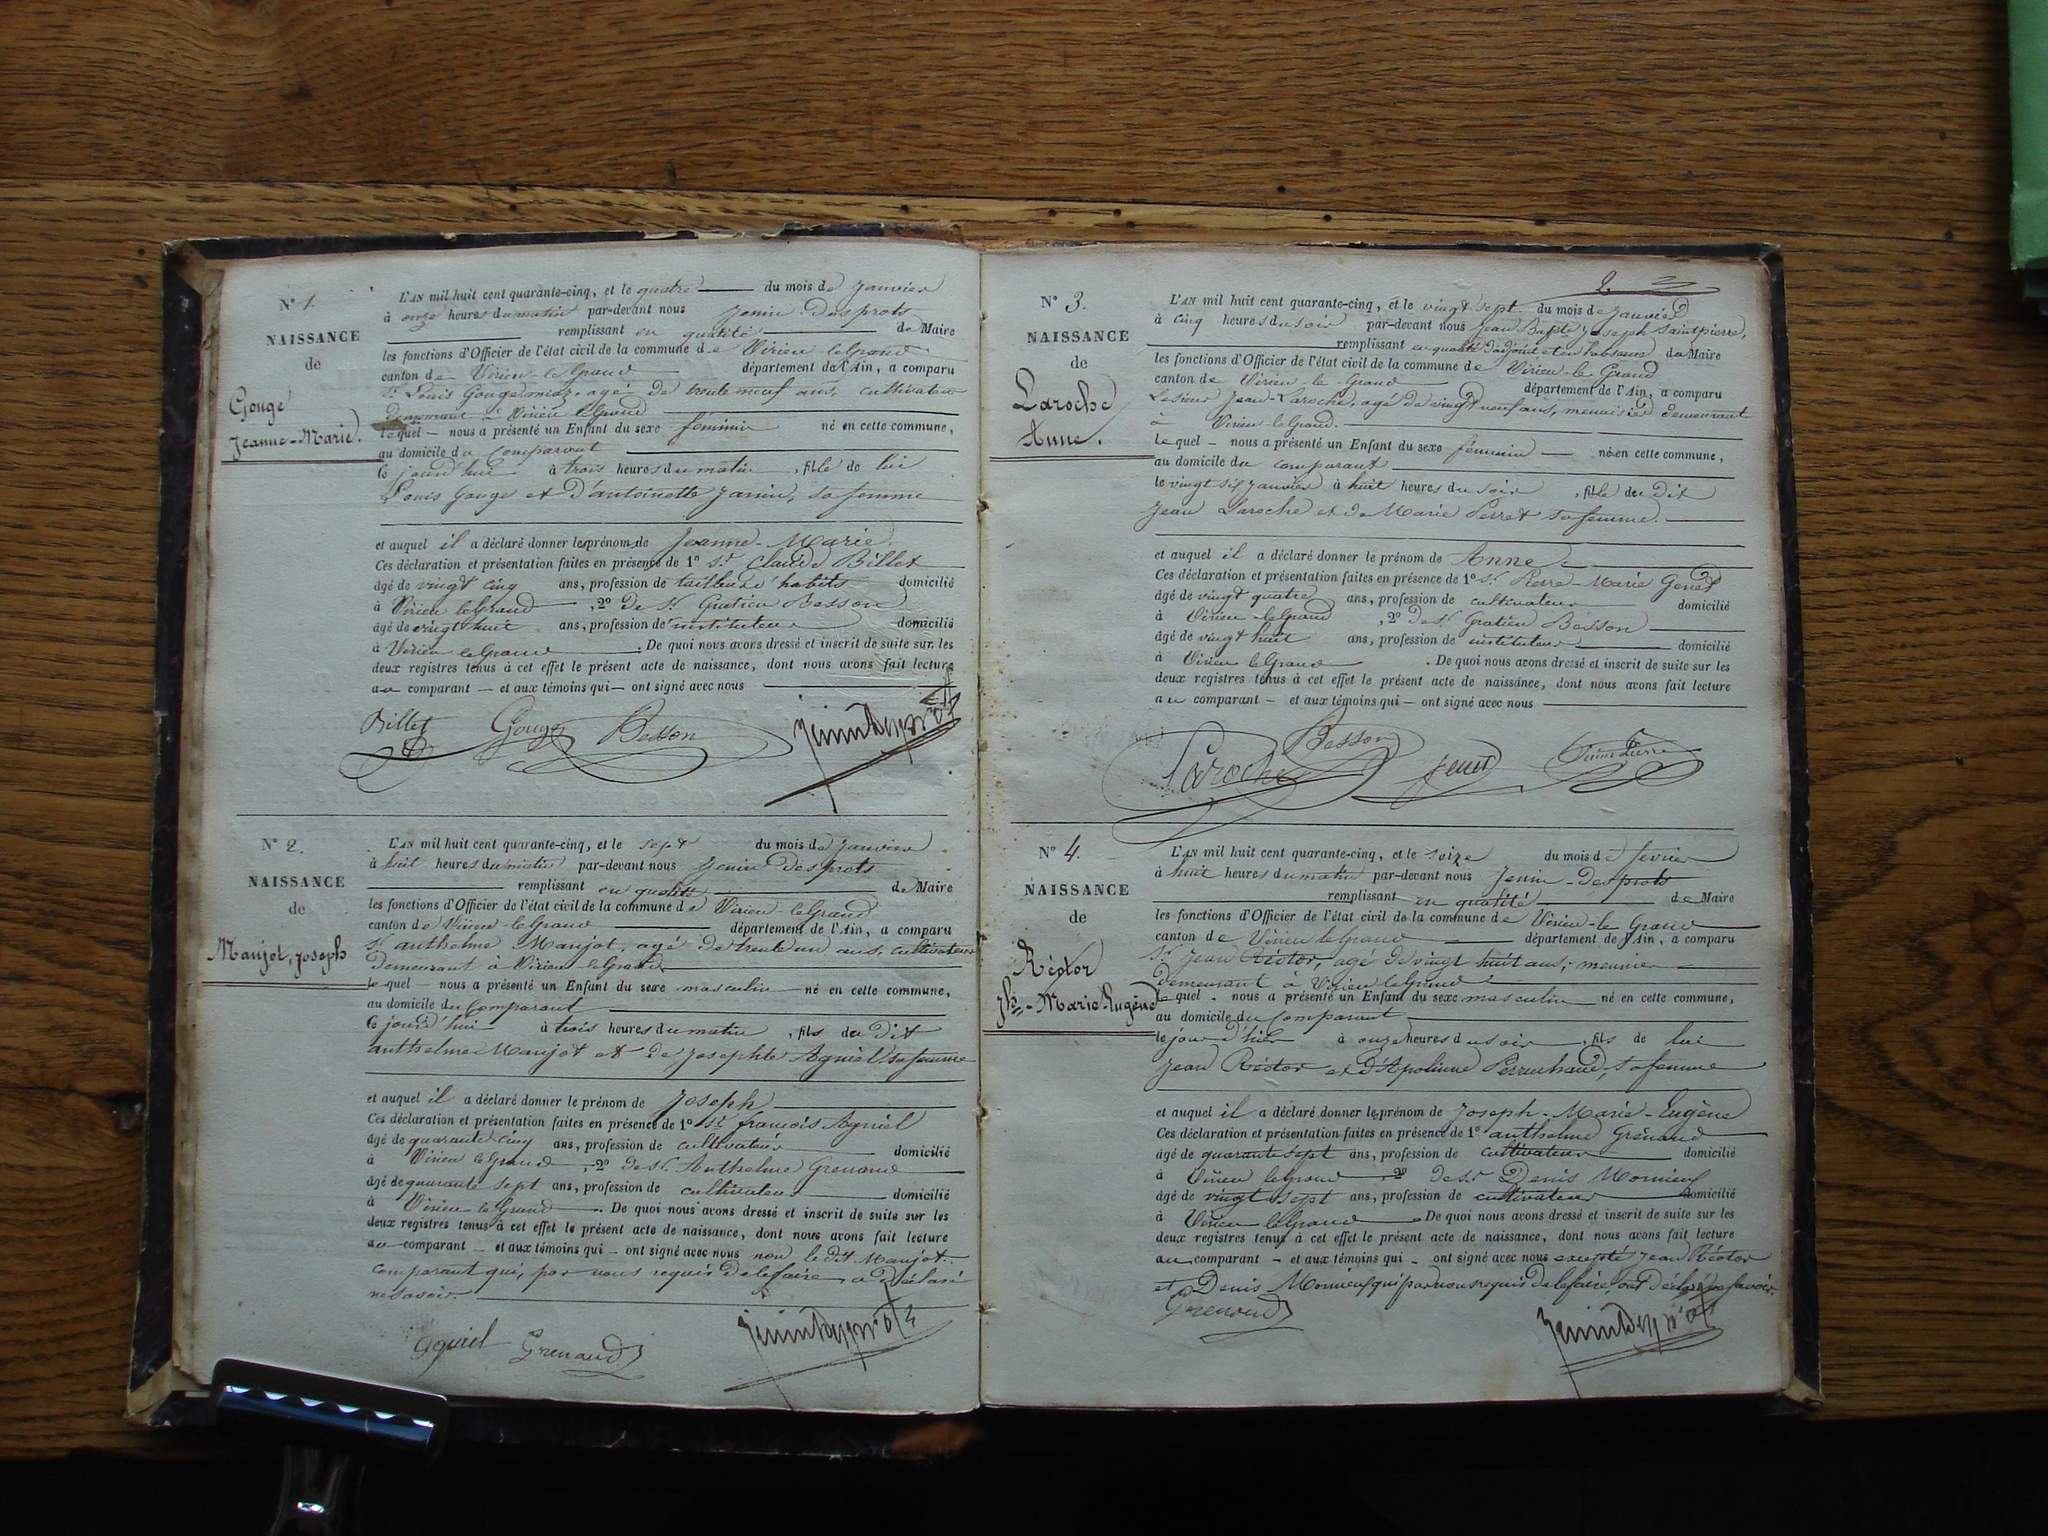 N° 1.
NAISSANCE
de
Gouge
Jeanne-Marie.
L'AN mil huit cent quarante-cinq, et le quatre du mois de Janvier
à onze heures du matin par-devant nous Jenin Desprots
remplissant en qualité de Maire
les fonctions d'Officier de l'état civil de la commune de Virieu le Grand
canton de Virieu-le Grand département de l'Ain, a comparu
Sr. Louis Gouge agé de trente neuf ans, cultivateur
Demeurant à Virieu le Grand
lequel – nous a présenté un Enfant du sexe féminin né en cette commune,
au domicile du Comparant
le jourd'hui à trois heures du matin, fille de lui
Louis Gouge et d'antoinette Janin, sa femme
et auquel il a déclaré donner les prénoms de Jeanne-Marie.
Ces déclaration et présentation faites en présence de 1° Sr. Claude Billet
âgé de vingt cinq ans, profession de tailleur d'habits domicilié
à Virieu le Grand, 2° De Sr. Gratien Besson
âgé de vingt huit ans, profession de instituteur domicilié
à Virieu le Grand. De quoi nous avons dressé et inscrit de suite sur les
deux registres tenus à cet effet le présent acte de naissance, dont nous avons fait lecture
au comparant – et aux témoins qui – ont signé avec nous
Billet Gouge Besson Jenin Desprots
N° 2.
NAISSANCE
de
Maujot, Joseph
L'AN mil huit cent quarante-cinq, et le sept du mois de Janvier
à huit heures du matin par-devant nous Jenin Desprots
remplissant en qualité de Maire
les fonctions d'Officier de l'état civil de la commune de Virieu-le Grand
canton de Virieu-le Grand département de l'Ain, a comparu
Sr. anthelme Maujot, agé de trente un ans, cultivateur
Demeurant à Virieu-le Grand
lequel – nous a présenté un Enfant du sexe masculin né en cette commune,
au domicile du Comparant
le jourd'hui à trois heures du matin, fils du dit
anthelme Maujot et de Josephte Agniel sa femme
et auquel il a déclaré donner le prénom de Joseph
Ces déclaration et présentation faites en présence de 1° Sr. françois Agniel
âgé de quarante cinq ans, profession de cultivateur domicilié
à Virieu le Grand, 2° de Sr. Anthelme Grenaud
âgé de quarante sept ans, profession de cultivateur domicilié
à Virieu le Grand. De quoi nous avons dressé et inscrit de suite sur les
deux registres tenus à cet effet le présent acte de naissance, dont nous avons fait lecture
au comparant – et aux témoins qui – ont signé avec nous non le dit Maujot
comparant qui, par nous requis de le faire, a déclaré
ne savoir.
Agniel Grenaud Jenin Desprots
2.
N° 3.
NAISSANCE
de
Laroche
Anne.
L'AN mil huit cent quarante-cinq, et le vingt sept du mois de Janvier
à cinq heures du soir par-devant nous Jean Bapte Joseph Saintpierre,
remplissant en qualité d'adjoint et en l'absence du Maire
les fonctions d'Officier de l'état civil de la commune de Virieu-le Grand
canton de Virieu-le-Grand département de l'Ain, a comparu
Le sieur Jean-Laroche, agé de vingt neuf ans, menuisier demeurant
à Virieu-le Grand.
lequel – nous a présenté un Enfant du sexe féminin né en cette commune,
au domicile du comparant
le vingt six Janvier à huit heures du soir, fille du dit
Jean Laroche et de Marie Perret sa femme.
et auquel il a déclaré donner le prénom de Anne
Ces déclaration et présentation faites en présence de 1° Sr. Pierre-Marie Genet
âgé de vingt quatre ans, profession de cultivateur domicilié
à Virieu le Grand, 2° de Sr. Gratien Besson
âgé de vingt huit ans, profession de instituteur domicilié
à Virieu le Grand. De quoi nous avons dressé et inscrit de suite sur les
deux registres tenus à cet effet le présent acte de naissance, dont nous avons fait lecture
au comparant – et aux témoins qui – ont signé avec nous
Laroche Besson Genet Saint Pierre
N° 4.
NAISSANCE
de
Réotor
Jh-Marie-Eugène
L'AN mil huit cent quarante-cinq, et le seize du mois de fevrier
à huit heures du matin par-devant nous Jenin-Desprots
remplissant en qualité de Maire
les fonctions d'Officier de l'état civil de la commune de Virieu-le Grand
canton de Virieu le Grand département de l'Ain, a comparu
Sr. Jean Réotor, agé de vingt huit ans, meunier
Demeurant à Virieu le Grand
lequel – nous a présenté un Enfant du sexe masculin né en cette commune,
au domicile du Comparant
le jour d'hier à onze heures du soir, fils de lui
Jean Réotor et d'Apolinne Perruchaud, sa femme
et auquel il a déclaré donner les prénom de Joseph-Marie-Eugène
Ces déclaration et présentation faites en présence de 1° anthelme Grenaud
âgé de quarante sept ans, profession de cultivateur domicilié
à Virieu le Grand 2° de Sr. Denis
âgé de vingt sept ans, profession de cultivateur domicilié
à Virieu le Grand. De quoi nous avons dressé et inscrit de suite sur les
deux registres tenus à cet effet le présent acte de naissance, dont nous avons fait lecture
au comparant – et aux témoins qui – ont signé avec nous excepté Jean Réotor
et Denis qui par nous requis de le faire, ont déclaré ne savoir
Grenaud Jenin Desprots